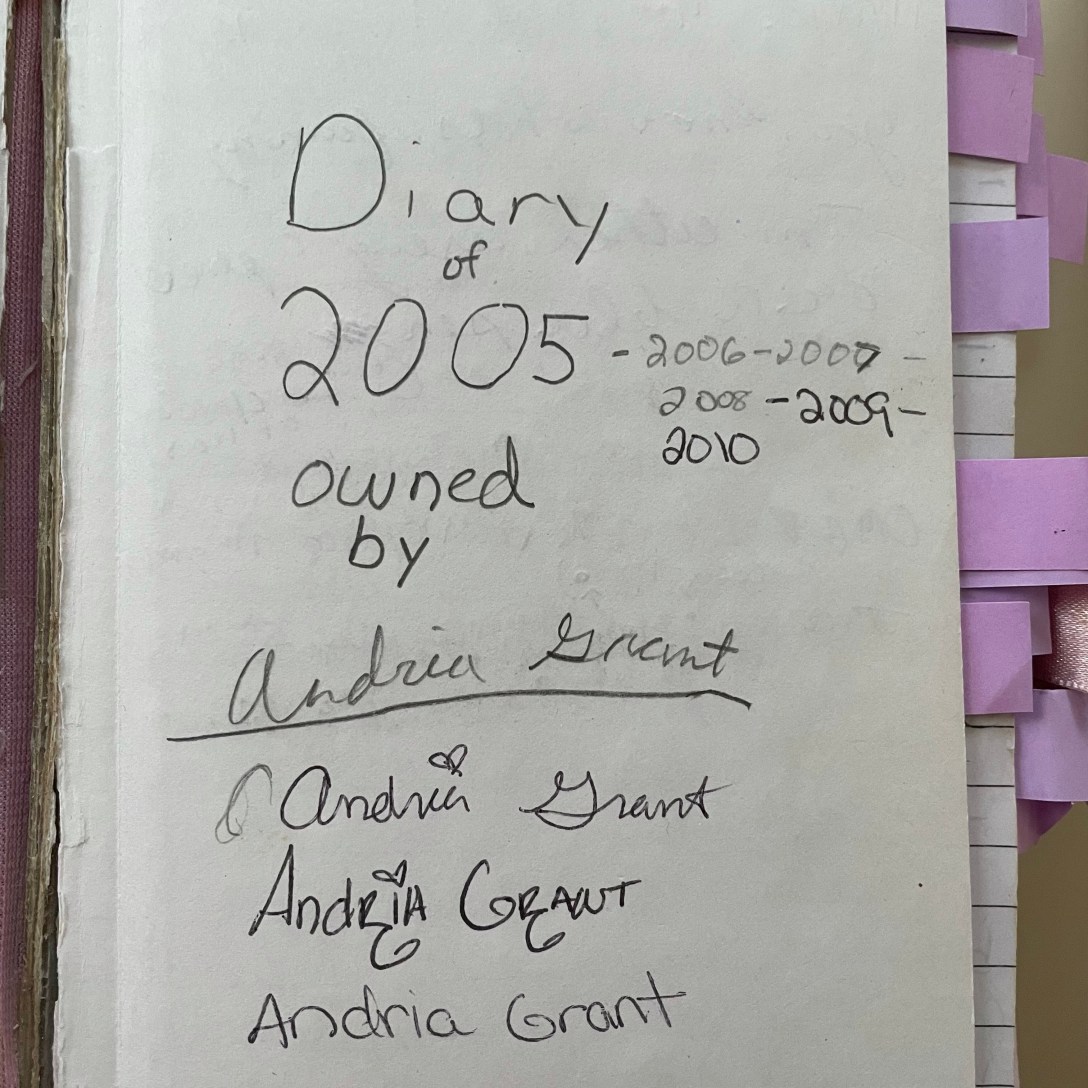 Diary
of
2005 - 2006 - 2007 -
2008 - 2009 -
2010
owned
by
Andria Grant
Andria Grant
Andria Grant
Andria Grant